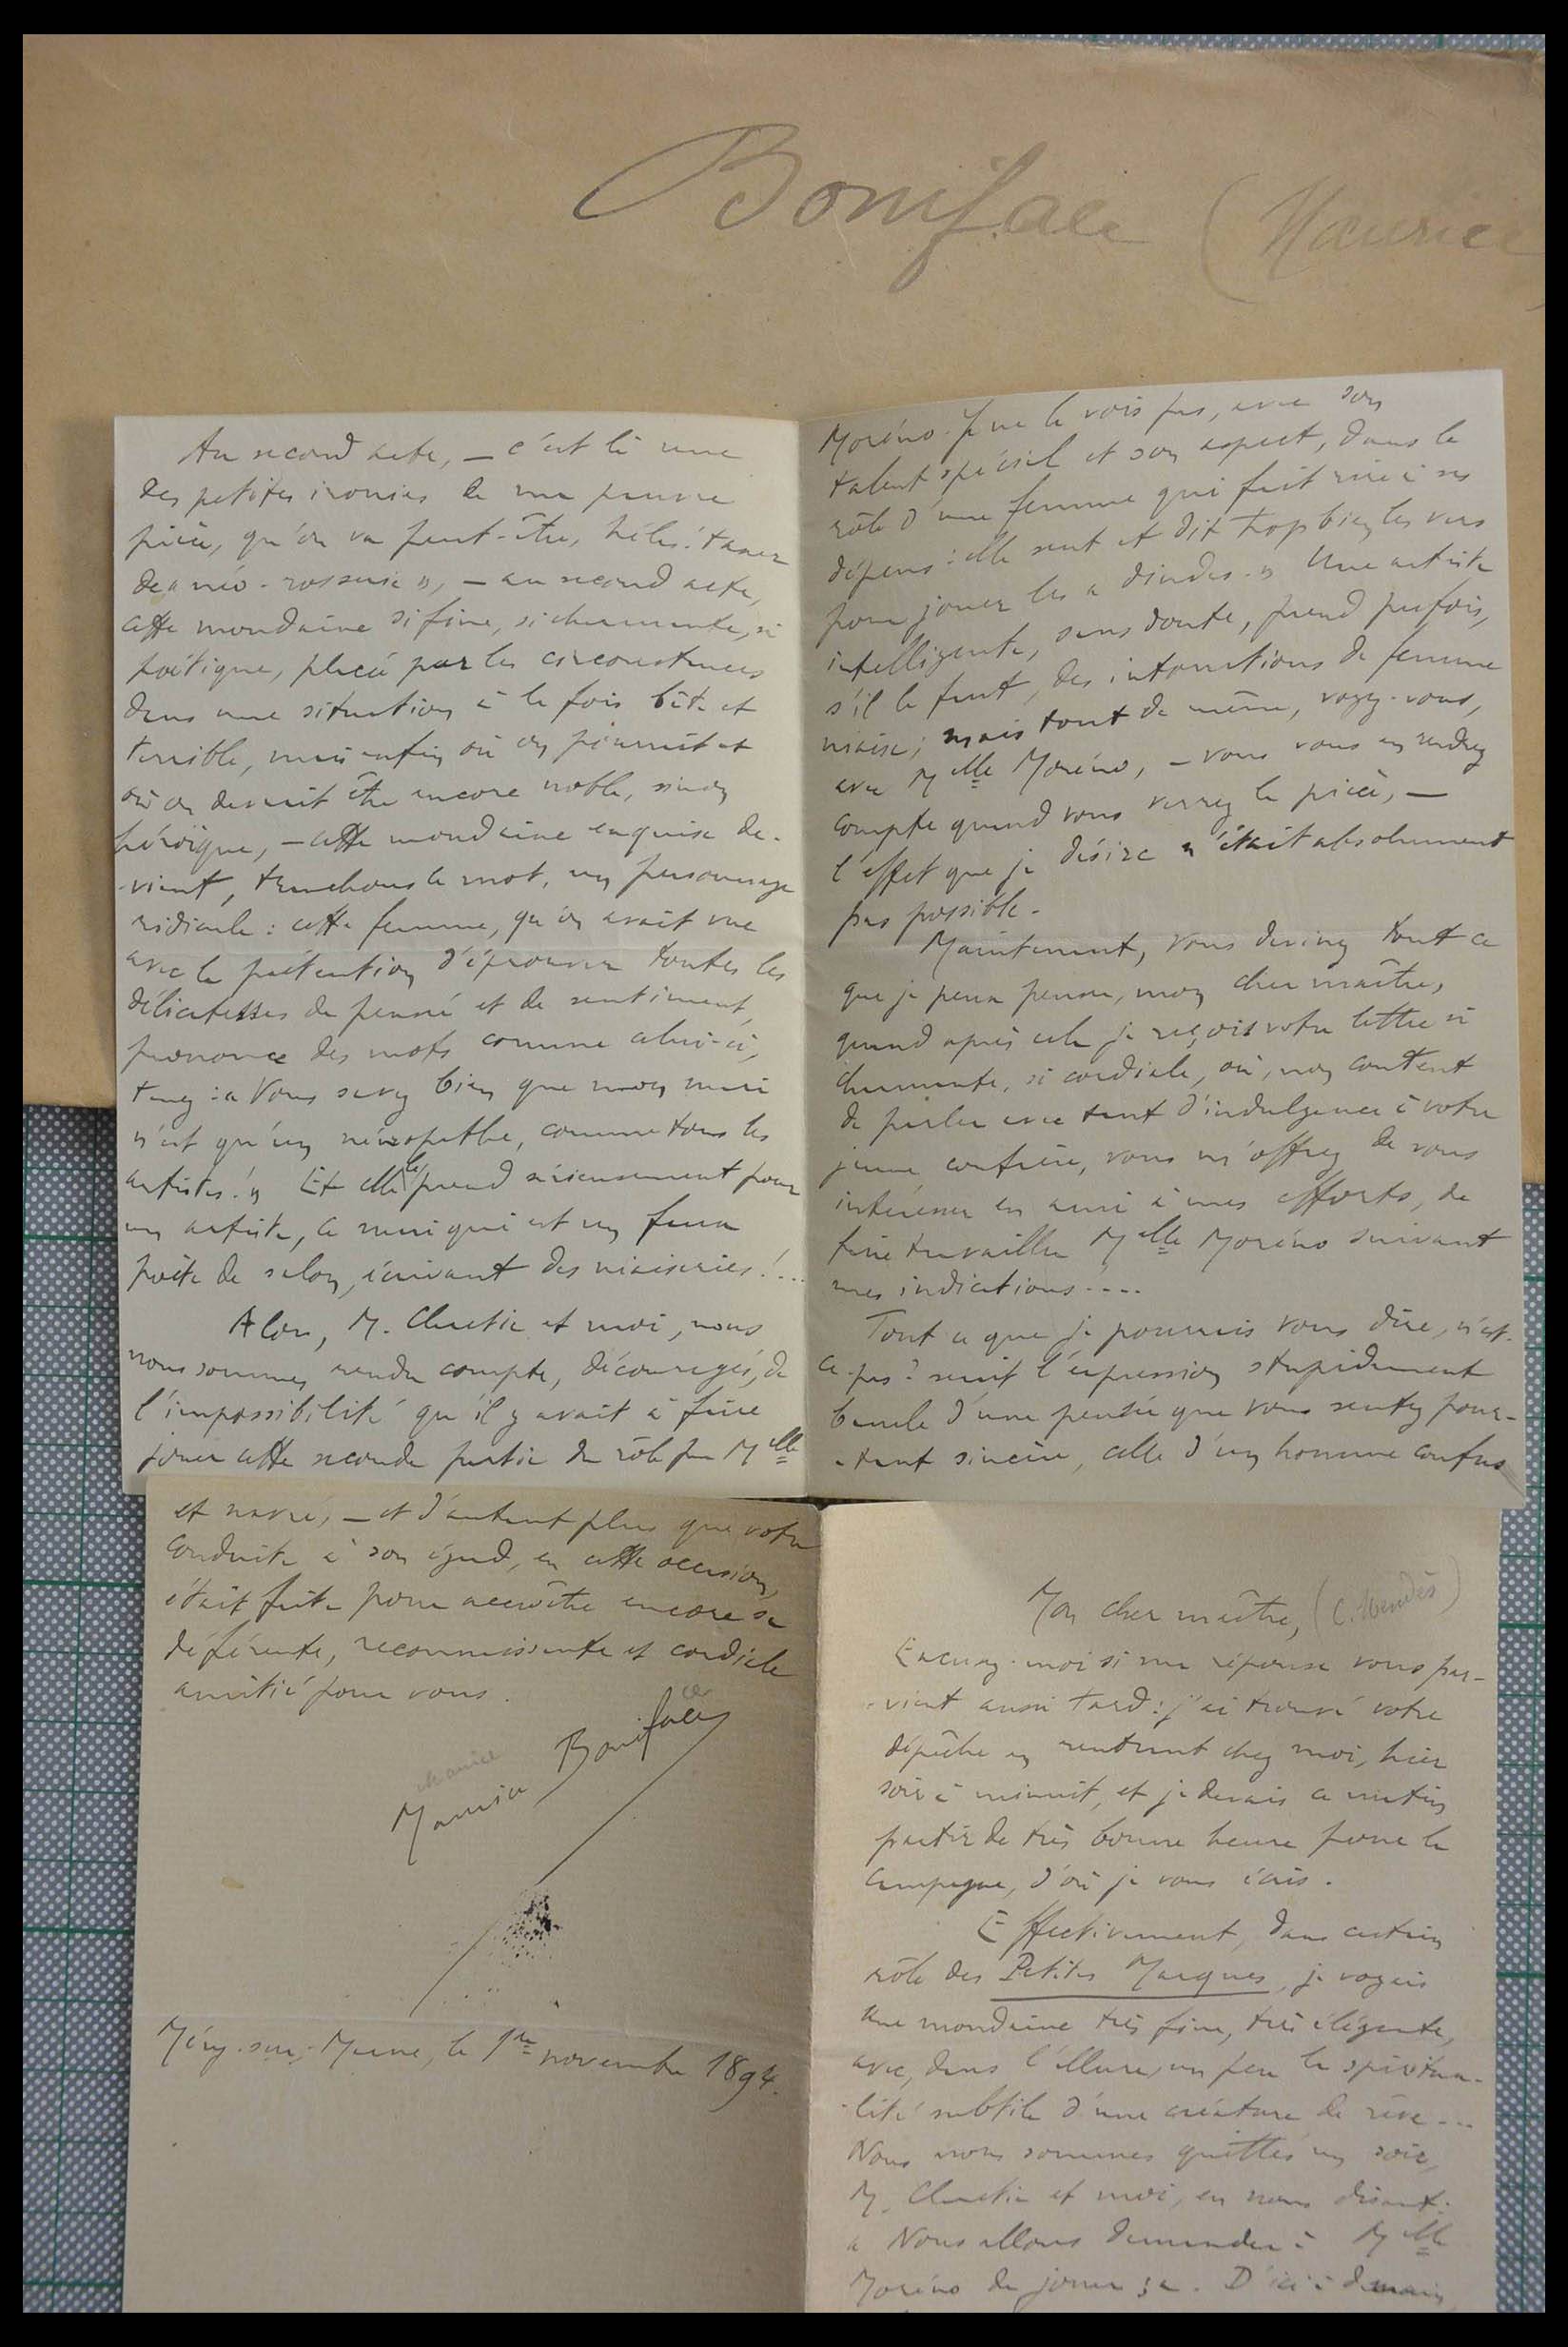 Boniface (Maurice
Au second acte, — c'est là une
des petites ironies de ma pauvre
pièce, qu'on va peut-être, hélas! taxer
de « néo-rosserie », — au second acte,
cette mondaine si fine, si charmante, si
poétique, placée par les circonstances
dans une situation à la fois bête et
terrible, mais enfin où on pourrait et
où on devrait être encore noble, sinon
héroïque, — cette mondaine exquise de-
-vient, tranchons le mot, un personnage
ridicule : cette femme, qu'on avait vue
avec la prétention d'éprouver toutes les
délicatesses de pensée et de sentiment,
prononce des mots comme celui-ci,
tenez : « Vous savez bien que mon mari
n'est qu'un névropathe, comme tous les
artistes! » Et elle le prend sérieusement pour
un artiste, ce mari qui est un faux
poète de salon, écrivant des niaiseries!...
Alors, M. Claretie et moi, nous
nous sommes rendu compte, découragés, de
l'impossibilité qu'il y avait à faire
jouer cette seconde partie du rôle par Mlle
Moréno. Je ne la vois pas, avec son
talent spécial et son aspect, dans le
rôle d'une femme qui fait rire à ses
dépens : elle sent et dit trop bien les vers
pour jouer les « dindes. » Une artiste
intelligente, sans doute, prend parfois,
s'il le faut, des intonations de femme
niaise; mais tout de même, voyez-vous,
avec Mlle Moréno, — vous vous en rendrez
compte quand vous verrez la pièce, —
l'effet que je désire n'était absolument
pas possible.
Maintenant, vous devinez tout ce
que je peux penser, mon cher maître,
quand après cela je reçois votre lettre si
charmante, si cordiale, où, non content
de parler avec tant d'indulgence à votre
jeune confrère, vous m'offrez de vous
intéresser en ami à mes efforts, de
faire travailler Mlle Moréno suivant
mes indications....
Tout ce que je pourrais vous dire, n'est-
ce-pas? serait l'expression stupidement
banale d'une pensée que vous sentez pour-
-tant sincère, celle d'un homme confus
et navré, — et d'autant plus que votre
conduite à son égard, en cette occasion,
était faite pour accroître encore sa
déférente, reconnaissante et cordiale
amitié pour vous.
ce
Maurice Boniface
Méry-sur-Marne, le 1er novembre 1894.
Mon cher maître, (C. Mendès)
Excusez-moi si ma réponse vous par-
-vient aussi tard : j'ai trouvé votre
dépêche en rentrant chez moi, hier
soir à minuit, et je devais ce matin
partir de très bonne heure pour la
campagne, d'où je vous écris.
Effectivement, dans certain
rôle des Petites Marques, je voyais
une mondaine très fine, très élégante,
avec, dans l'allure, un peu la spiritua-
-lité subtile d'une créature de rêve...
Nous nous sommes quittés un soir,
M. Claretie et moi, en nous disant :
« Nous allons demander à Mlle
Moréno de jouer ça. D'ici à demain,